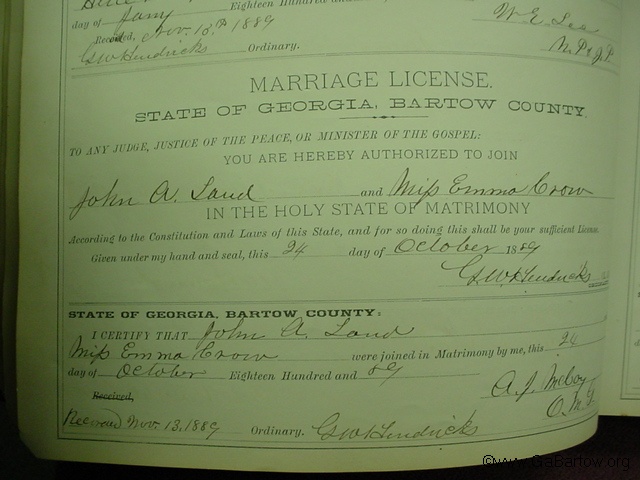 Eighteen Hundred and
day of Jany
W. E. Lee
Recorded, Nov. 13th 1889
N.P. & J.P.
G W Hendricks Ordinary.
MARRIAGE LICENSE.
STATE OF GEORGIA, BARTOW COUNTY.
TO ANY JUDGE, JUSTICE OF THE PEACE, OR MINISTER OF THE GOSPEL:
YOU ARE HEREBY AUTHORIZED TO JOIN
John A. Land and Miss Emma Crow
IN THE HOLY STATE OF MATRIMONY
According to the Constitution and Laws of this State, and for so doing this shall be your sufficient License.
Given under my hand and seal, this 24 day of October 1889
G. W. Hendricks
STATE OF GEORGIA, BARTOW COUNTY:
I CERTIFY THAT John A. Land
Miss Emma Crow were joined in Matrimony by me, this 24
day of October Eighteen Hundred and 89
A. J. McCoy
O. M. G.
Received,
Recorded Nov. 13, 1889 Ordinary. G W Hendricks
©www.GaBartow.org